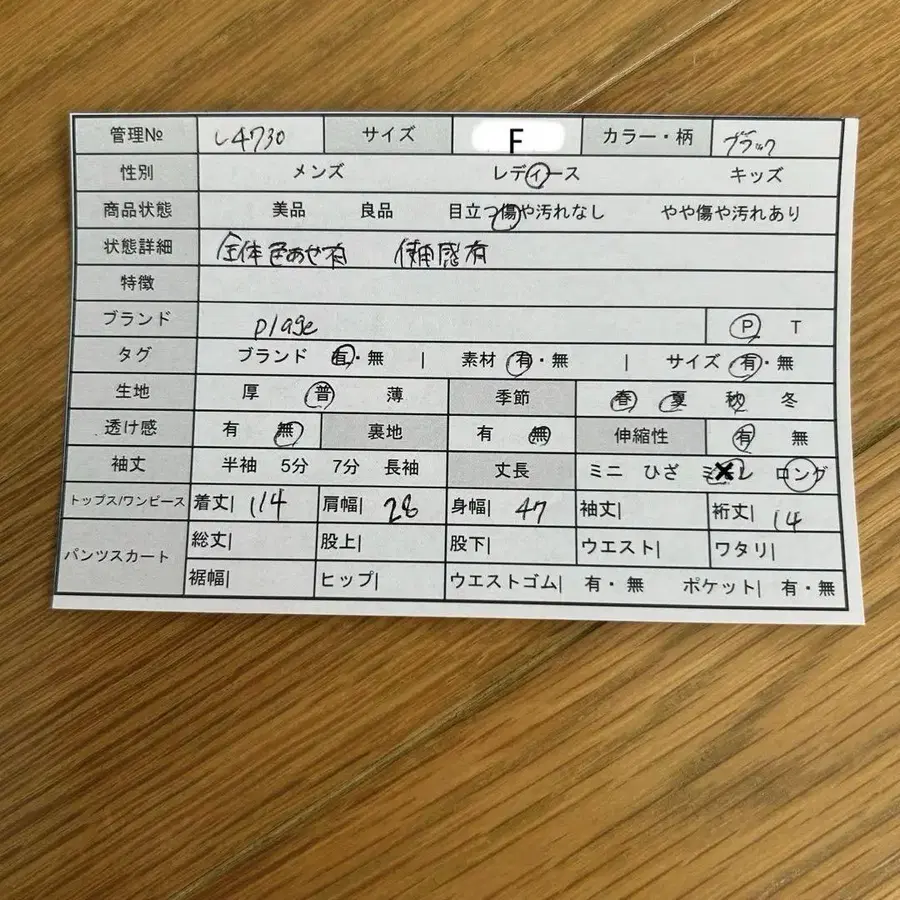 管理№ L4730 サイズ F カラー・柄 ブラック
性別 メンズ レディース キッズ
商品状態 美品 良品 目立つ傷や汚れなし やや傷や汚れあり
状態詳細 全体色あせ有 使用感有
特徴
ブランド plage P T
タグ ブランド 有・無 | 素材 有・無 | サイズ 有・無
生地 厚 普 薄 季節 春 夏 秋 冬
透け感 有 無 裏地 有 無 伸縮性 有 無
袖丈 半袖 5分 7分 長袖 丈長 ミニ ひざ ミモレ ロング
トップス/ワンピース 着丈| 114 肩幅| 28 身幅| 47 袖丈| 裄丈| 14
パンツスカート 総丈| 股上| 股下| ウエスト| ワタリ|
裾幅| ヒップ| ウエストゴム| 有・無 ポケット| 有・無